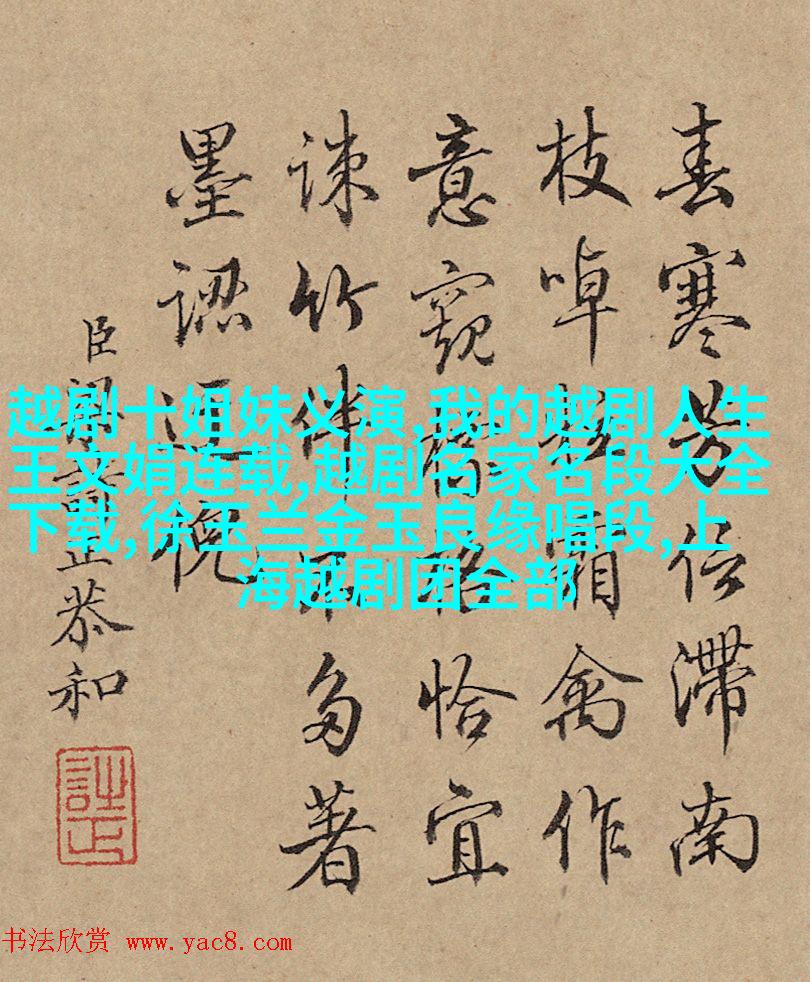 春寒芳信滞南
枝啅霜禽作
意窺恰宜
竹伴多著
墨認
臣梁詩正恭和
越剧十姐妹义演,我的越剧人生
王文娟连载,越剧名家名段大全
下载,徐玉兰金玉良缘唱段,上
海越剧团全部
书法欣赏 www.yac8.com